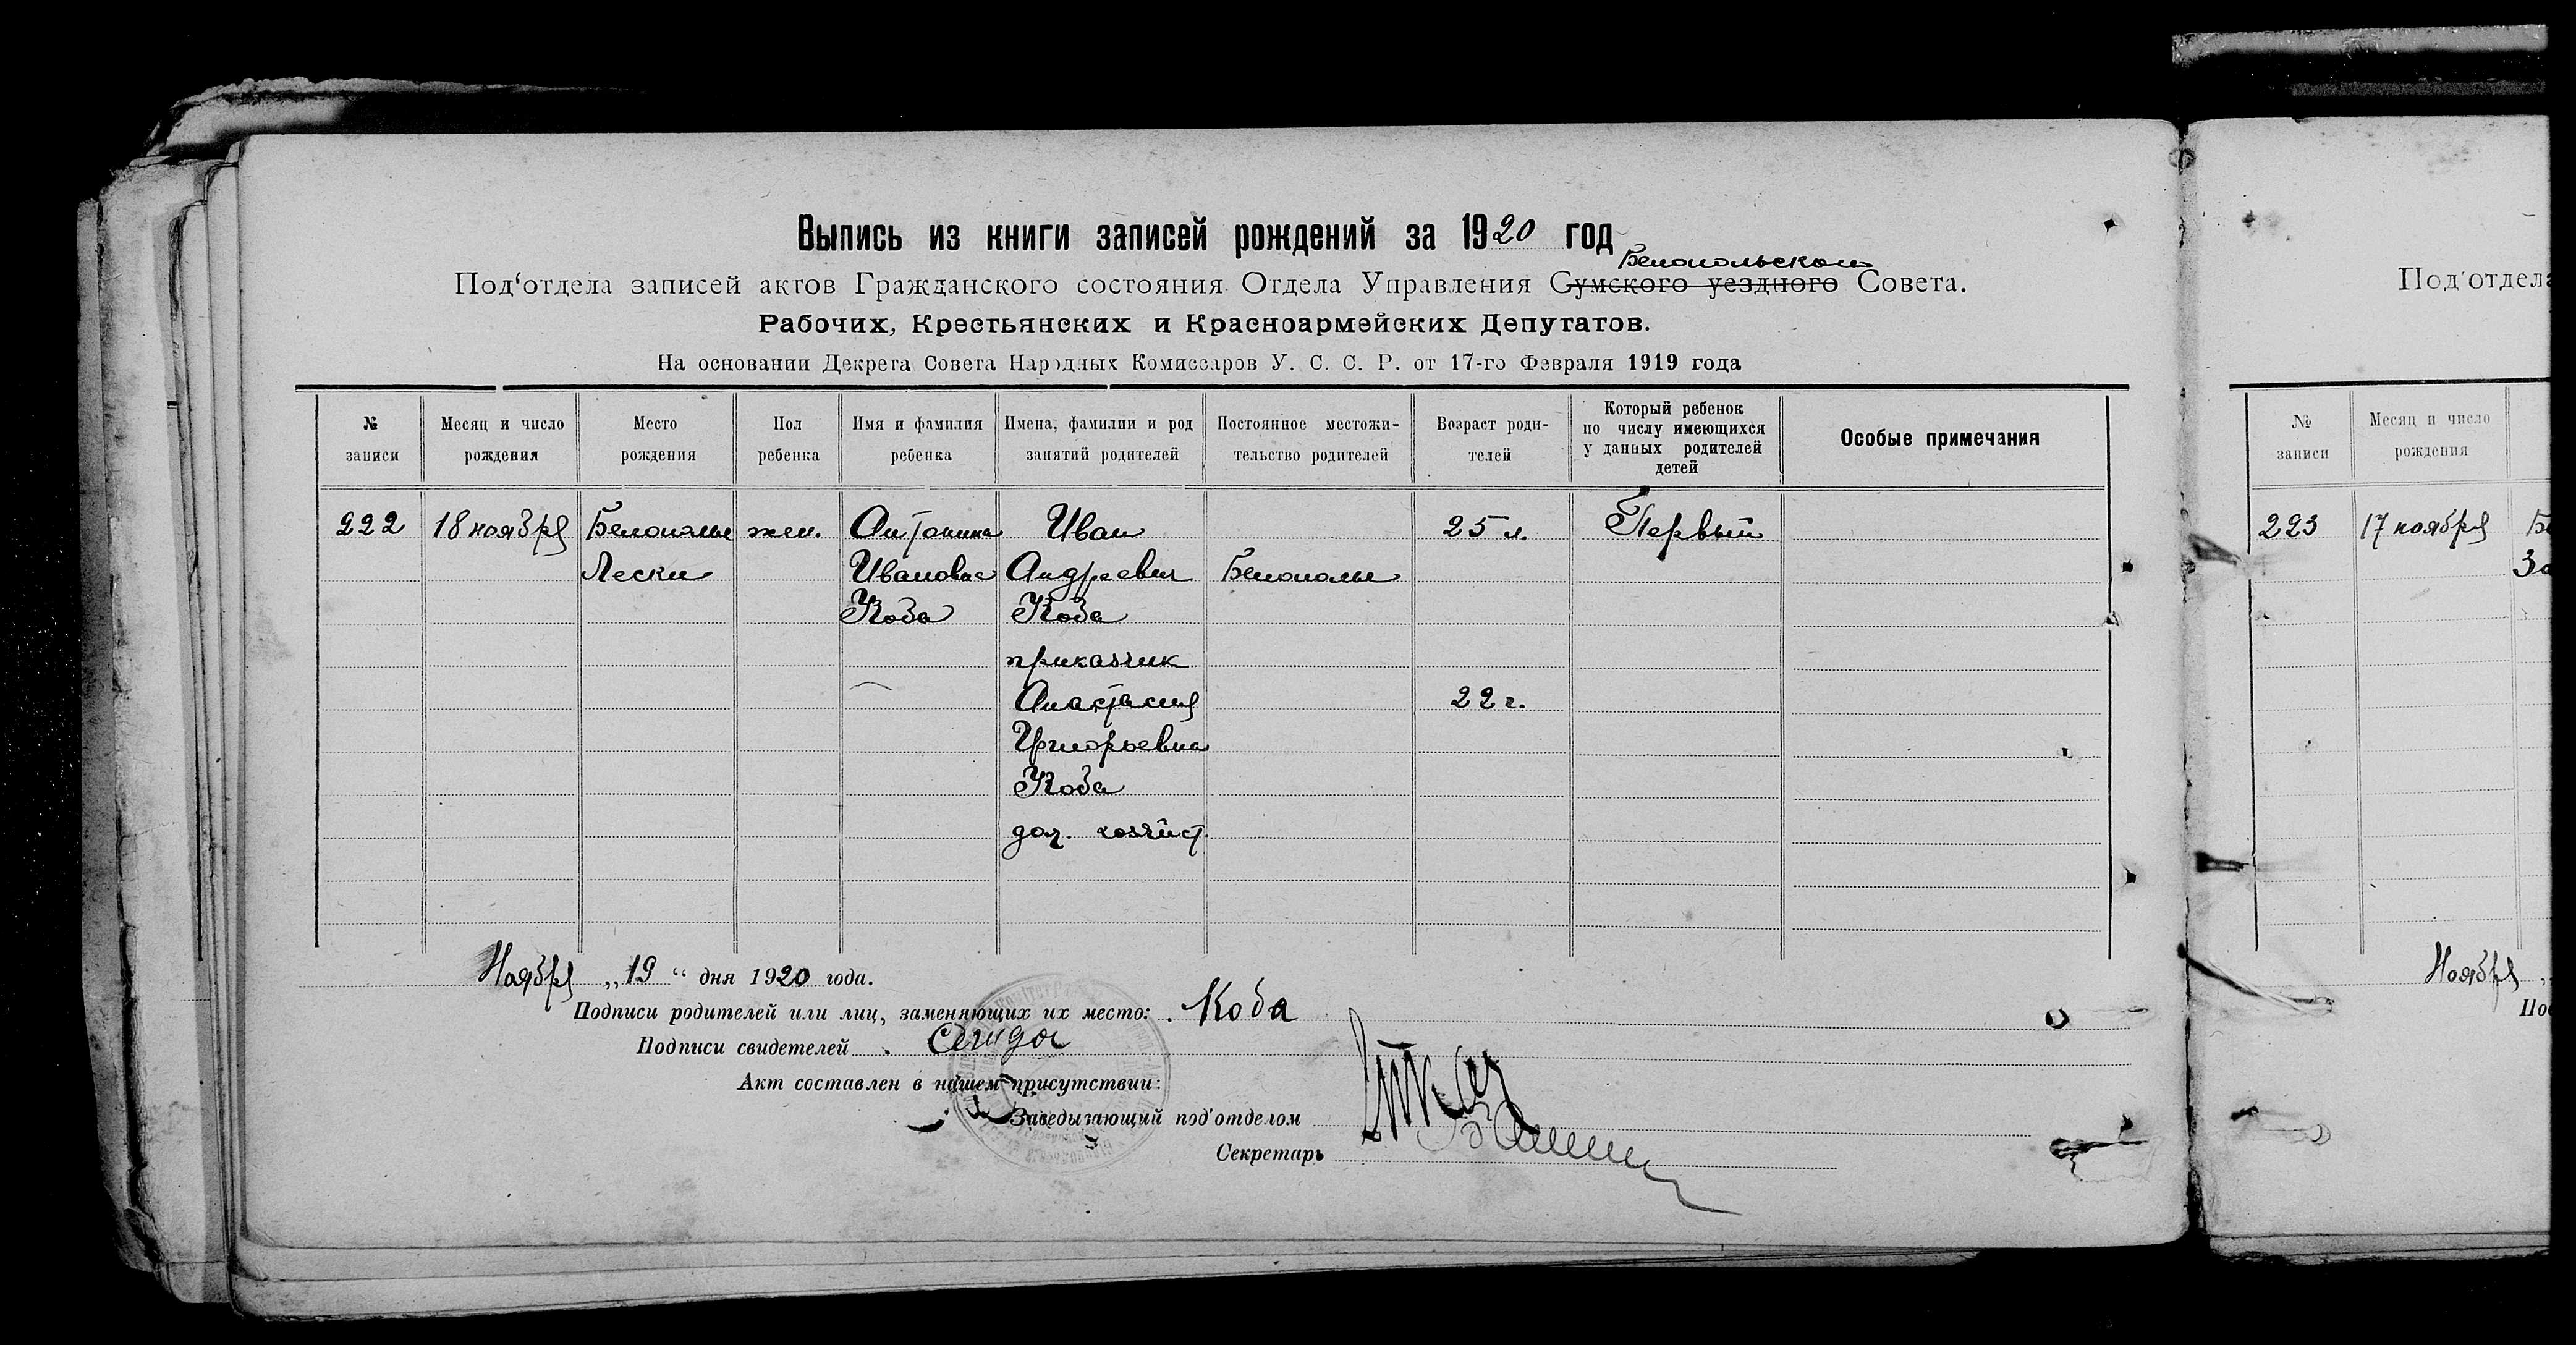 Выпись из книги записей рождений за 1920 год
Белопольского
Под'отдела записей актов Гражданского состояния Отдела Управления Сумского уездного Совета.
Рабочих, Крестьянских и Красноармейских Депутатов.
На основании Декрета Совета Народных Комиссаров У. С. С. Р. от 17-го Февраля 1919 года
№ записи
Месяц и число рождения
Место рождения
Пол ребенка
Имя и фамилия ребенка
Имена, фамилии и род занятий родителей
Постоянное местожительство родителей
Возраст родителей
Который ребенок по числу имеющихся у данных родителей детей
Особые примечания
222 18 ноября Белополье жен. Антонина Иван 25 л. Первый
Лески Ивановна Андреевич Белополье
Коба Коба
приказчик
Анастасия 22 г.
Григорьевна
Коба
дом. хозяйст.
Ноября „19“ дня 1920 года.
Подписи родителей или лиц, заменяющих их место: Коба
Подписи свидетелей
Акт составлен в нашем присутствии:
Заведывающий под'отделом
Секретарь
Под'отдела
№ записи
Месяц и число рождения
223 17 ноября
Ноября